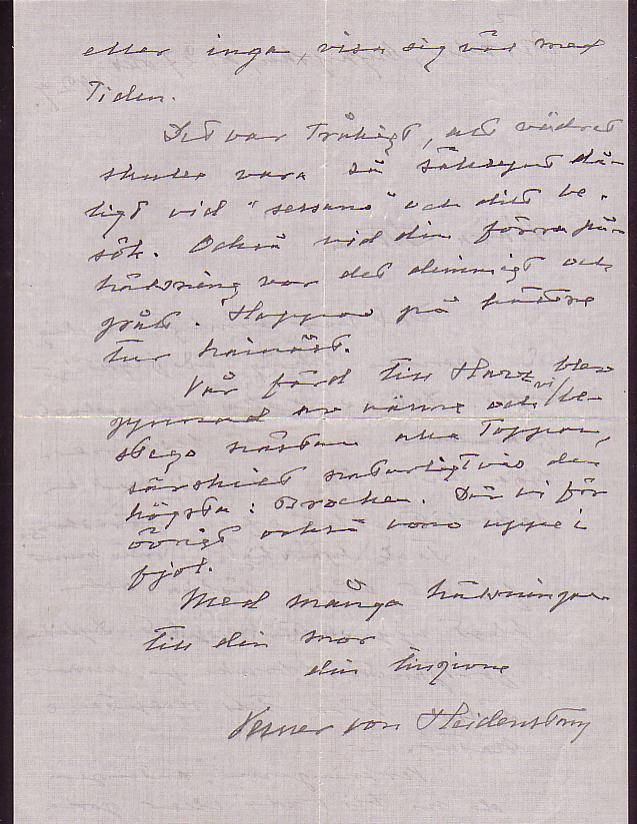 eller inga, visa sig väl med
Tiden.
Det var Tråkigt, att vädret
skulle vara så säkert då-
ligt vid "sessans" och ditt be-
sök. Också vid din förra på-
hälsning var det dimmigt och
grått. Hoppas på bättre
tur härnäst.
Vår färd till Harz blev
gynnad av värme och vi be-
stego nästan alla Toppar,
särskilt naturligtvis den
högsta: Brocken. Där vi för
övrigt också voro uppe i
fjol.
Med många hälsningar
till din mor
din tillgivne
Verner von Heidenstam